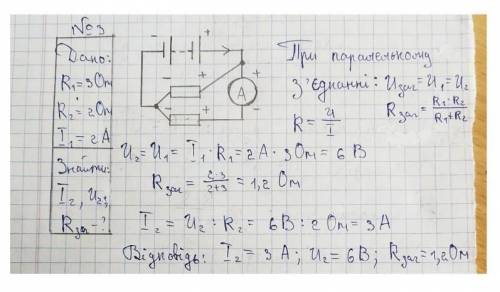 №3
Дано:
R₁ = 3 Ом
R₂ = 2 Ом
I₁ = 2 А
Знайти:
I₂, U₂;
Rзаг - ?
- + - +
- + +
А
- + -
При паралельному
з'єднанні: Uзаг = U₁ = U₂
R = U/I Rзаг = R₁·R₂/R₁+R₂
U₂ = U₁ = I₁ · R₁ = 2 А · 3 Ом = 6 В
Rзаг = 2·3/2+3 = 1,2 Ом
I₂ = U₂ : R₂ = 6 В : 2 Ом = 3 А
Відповідь: I₂ = 3 А; U₂ = 6 В; Rзаг = 1,2 Ом